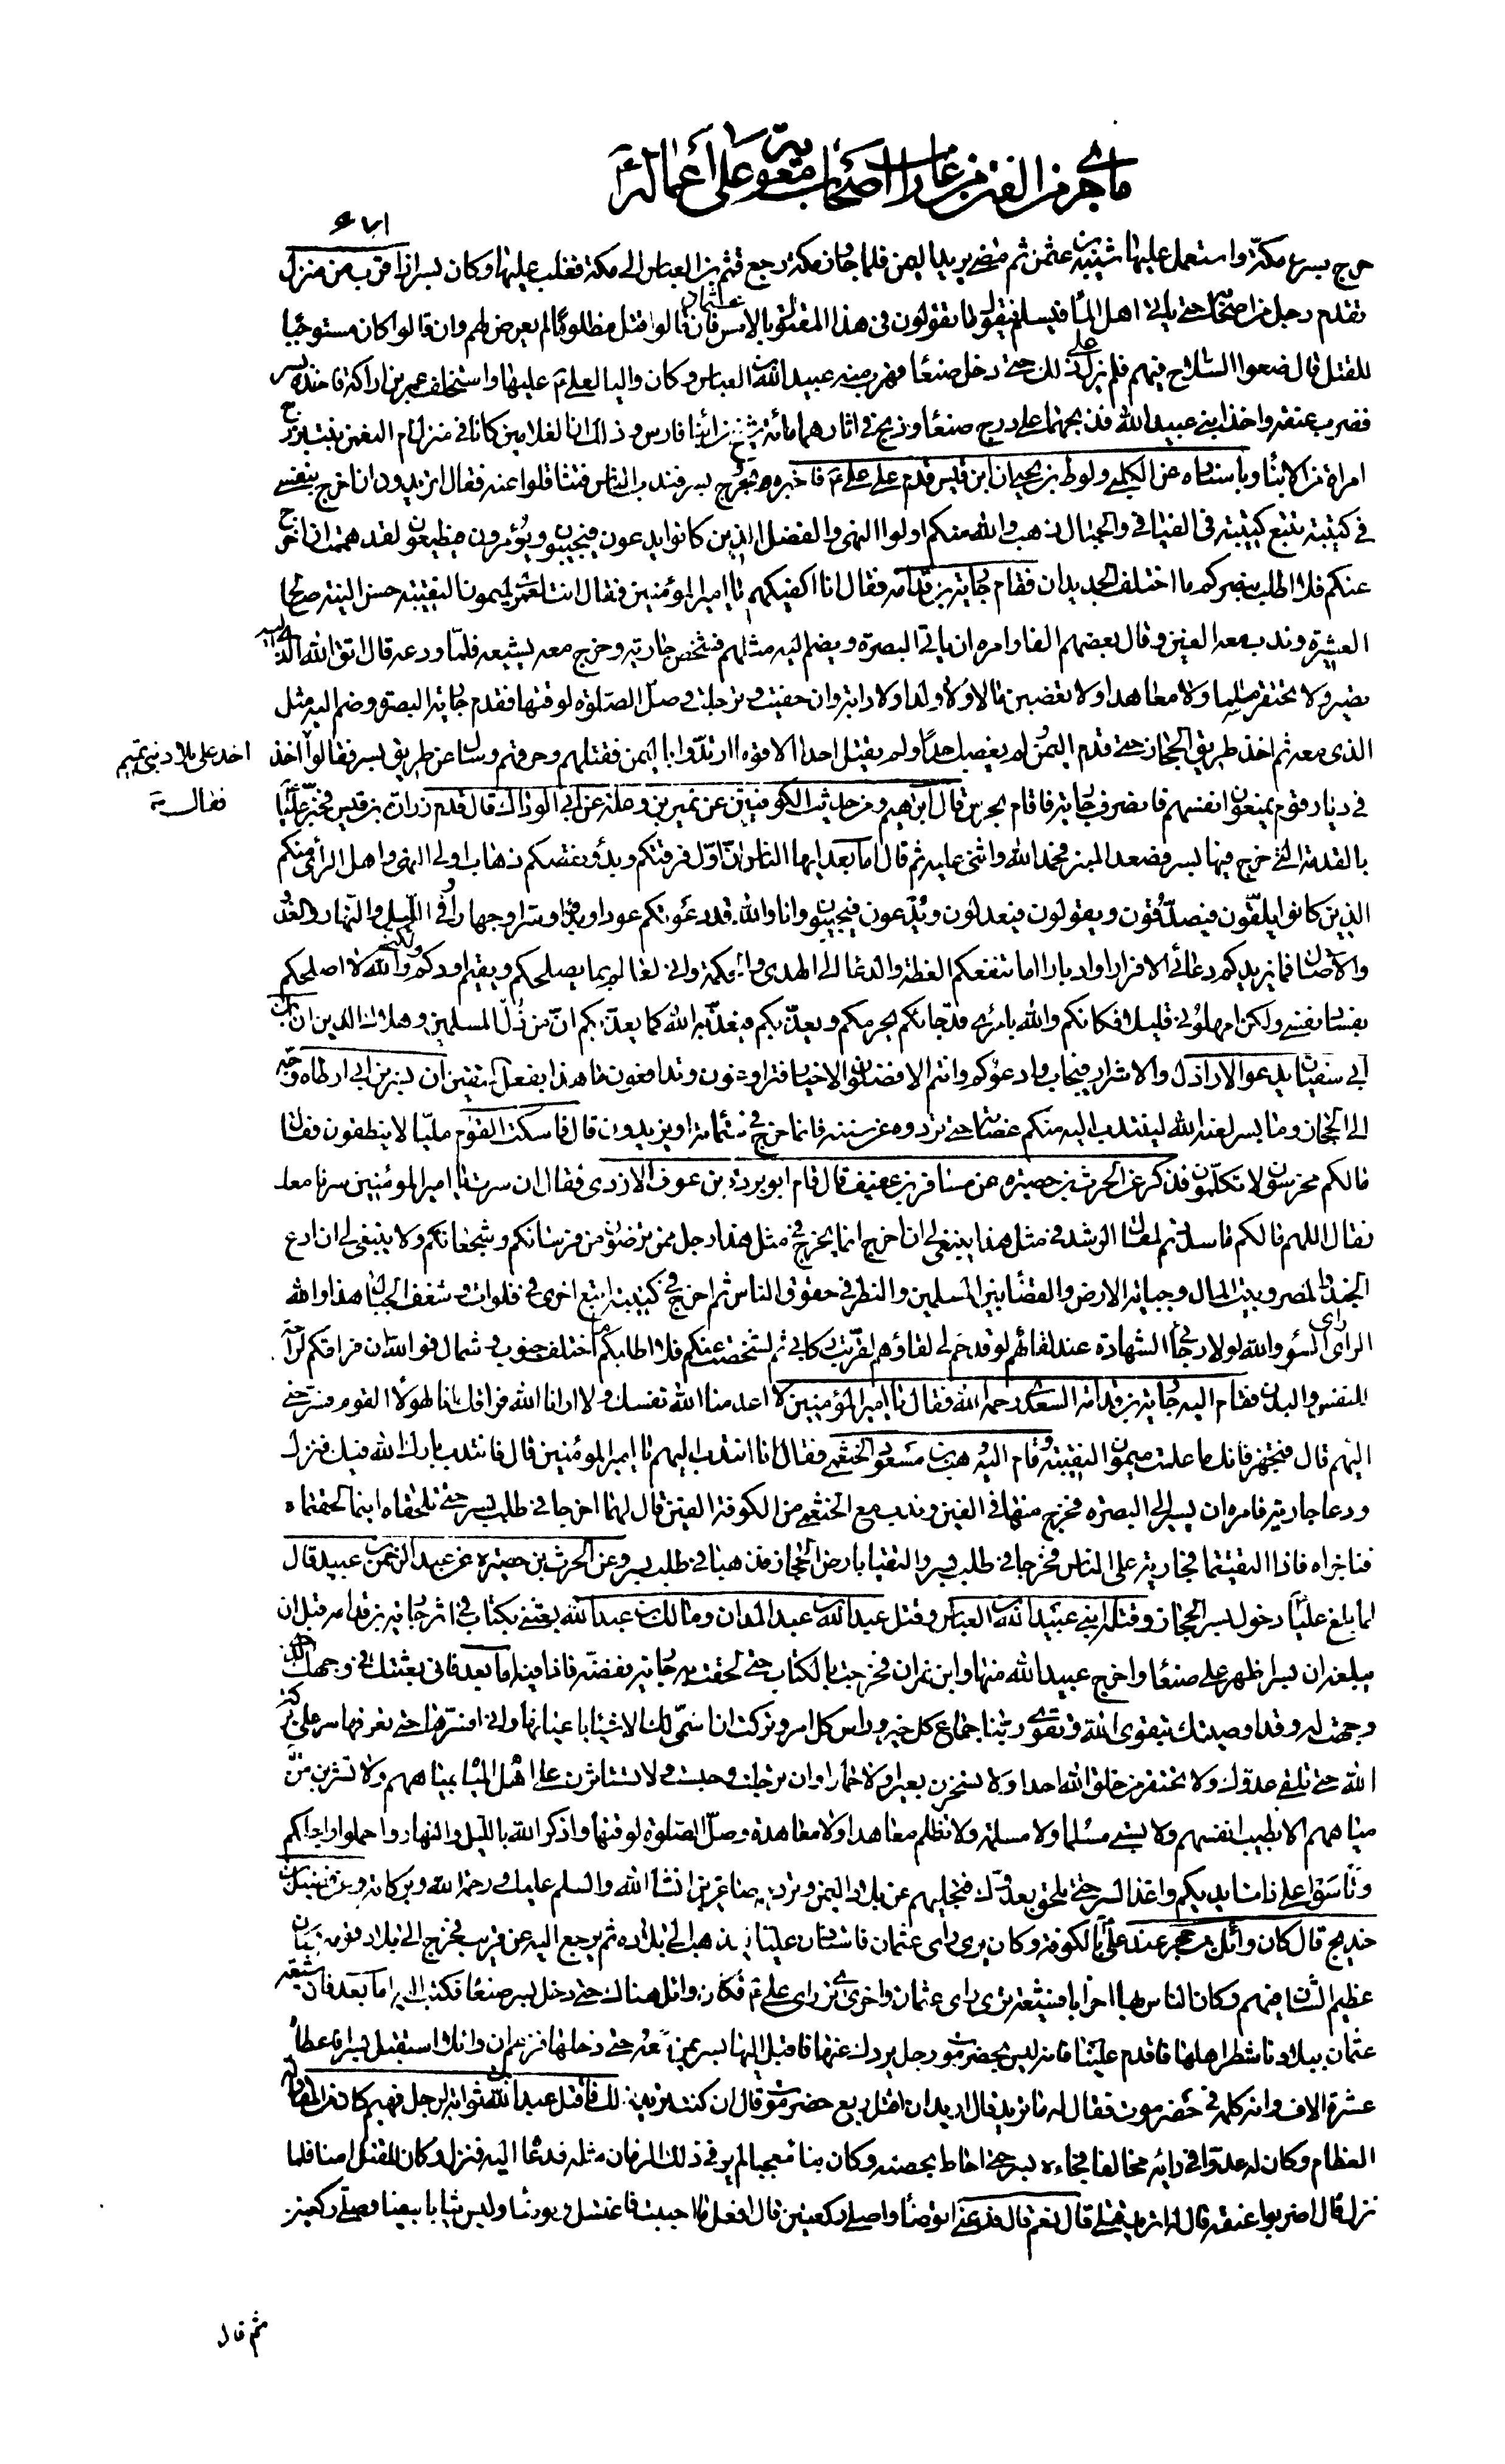 ما جرى من الفتن من غارات اصحاب معوية على أعماله ع
٤٧١
خرج بسر عن مكة واستعمل عليها شيبة بن عثمن ثم مضى يريد اليمن فلما جاوز مكة رجع قثم بن العباس الى مكة فغلب عليها وكان بسر اذا قرب من منزل
تقدم رجل من اصحابه حتى ياتي اهل الماء فيسلم فيقول ما تقولون في هذا المقتول بالامس عثمان فان قالوا قتل مظلوما لم يعرض لهم وان قالوا كان مستوجبا
للقتل قال ضعوا السلاح فيهم فلم يزل على ذلك حتى دخل صنعاء فهرب منه عبيد الله بن العباس وكان واليا لعلي ع عليها واستخلف عمرو بن اراكة فاخذه بسر
فضرب عنقه واخذ ابني عبيد الله فذبحهما على درج صنعاء وذبح في اثارهما مائة شيخ من ابناء فارس وذلك ان الغلامين كانا في منزل ام النعمن بنت بزرج
امراة من الابناء وباسناده عن الكلبي ولوط بن يحيى ان ابن قيس قدم على علي ع فاخبره بخروج بسر فندب الناس فتثاقلوا عنه فقال اتريدون ان اخرج بنفسي
في كتيبة تتبع كتيبة في الفيافي والجبال ذهب والله منكم اولوا النهى والفضل الذين كانوا يدعون فيجيبون ويؤمرون فيطيعون لقد هممت ان اخرج
عنكم فلا اطلب بنصركم ما اختلف الجديدان فقام جارية بن قدامه فقال انا اكفيكهم يا امير المؤمنين فقال انت لعمري لميمون النقيبة حسن النية صالح
العشيرة وندب معه الفين وقال بعضهم الفا وامره ان ياتي البصرة ويضم اليه مثلهم فشخص جارية وخرج معه يشيعه فلما ودعه قال اتق الله الذي اليه
تصير ولا تحتقر مسلما ولا معاهدا ولا تغصبن مالا ولا ولدا ولا دابة وان حفيت وترجلت وصل الصلوة لوقتها فقدم جارية البصرة وضم اليه مثل
الذى معه ثم اخذ طريق الحجاز حتى قدم اليمن لم يغصب احدا ولم يقتل احدا الا قوما ارتدوا باليمن فقتلهم وحرقهم وسال عن طريق بسر فقالوا اخذ
اخذ على بلاد بني تميم
فقال
في ديار قوم يمنعون انفسهم فانصرف جارية فاقام بجرش قال ابرهيم ومن حديث الكوفيين عن نمير بن وعلة عن ابي الوداك قال قدم زرارة بن قيس فخبر عليا
بالقدمة التي خرج فيها بسر فصعد المنبر فحمد الله واثنى عليه ثم قال اما بعد ايها الناس ان اول فرقتكم وبدو نقصكم ذهاب اولي النهى واهل الرأى منكم
الذين كانوا يلقون فيصدقون ويقولون فيعدلون ويدعون فيجيبون وانا والله قد دعوتكم عودا وبدءا وسرا وجهارا وفي الليل والنهار والغدو
والآصال فما يزيدكم دعائي الا فرارا وادبارا اما تنفعكم العظة والدعاء الى الهدى والحكمة واني لعالم بما يصلحكم ويقيم اودكم ولكني والله لا اصلحكم
بفساد نفسي ولكن امهلوني قليلا فكانكم والله بامرئ قد جاءكم يحرمكم ويعذبكم فيعذبه الله كما يعذبكم ان من ذل المسلمين وهلاك الدين ان ابن
ابي سفيان يدعو الاراذل والاشرار فيجاب وادعوكم وانتم الافضلون الاخيار فتراوغون وتدافعون ما هذا بفعل المتقين ان بسر بن ابي ارطاه وجه
الى الحجاز وما بسر لعنه الله لينتدب اليه منكم عصابة حتى تردوه عن سننه فانما خرج في ستمائة او يزيدون قال فاسكت القوم مليا لا ينطقون فقال
ما لكم مخرسون لا تكلمون فذكر عن الحرث بن حصيره عن مسافر بن عفيف قال قام ابو بردة بن عوف الازدى فقال ان سرت يا امير المؤمنين سرنا معك
فقال اللهم ما لكم ما سددتم لمقال الرشد في مثل هذا ينبغي لي ان اخرج انما يخرج في مثل هذا رجل ممن ترضون من فرسانكم وشجعانكم ولا ينبغي لي ان ادع
الجند والمصر وبيت المال وجباية الارض والقضاء بين المسلمين والنظر في حقوق الناس ثم اخرج في كتيبة اتبع اخرى في فلوات وشعف الجبال هذا والله
الراى السوء والله لولا رجائي الشهادة عند لقائهم لو قد حم لي لقاؤهم لقربت ركابي ثم لشخصت عنكم فلا اطلبكم ما اختلف جنوب وشمال فو الله ان فراقكم لراحة
للنفس والبدن فقام اليه جارية بن قدامة السعدي رحمه الله فقال يا امير المؤمنين لا اعدمنا الله نفسك ولا ارانا الله فراقك انا لهؤلاء القوم فسرحني
اليهم قال فتجهز فانك ما علمت ميمون النقيبة وقام اليه وهب بن مسعود الخثعمي فقال انا انتدب اليهم يا امير المؤمنين قال فانتدب بارك الله فيك فنزل
ودعا جارية فامره ان يسير الى البصره فخرج منها في الفين وندب مع الخثعمي من الكوفة الفين قال لهما اخرجا في طلب بسر حتى تلحقاه اينما لحقتماه
فناجزاه فاذا التقيتما فجارية على الناس فخرجا في طلب بسر والتقيا بارض الحجاز فذهبا في طلب بسر وعن الحرث بن حصيره عن عبد الرحمن بن عبيد قال
لما بلغ عليا دخول بسر الحجاز وقتله ابني عبيد الله بن العباس وقتل عبد الله بن عبد المدان ومالك بن عبد الله بعثني بكتاب في اثر جارية بن قدامه قبل ان
يبلغه ان بسرا ظهر على صنعاء واخرج عبيد الله منها وابن نمران فخرجت بالكتاب حتى لحقت به جارية ففضه فاذا فيه اما بعد فاني بعثتك في وجهك الذي
وجهت له وقد اوصيتك بتقوى الله وتقوى ربنا جماع كل خير وراس كل امر وتركت ان اسمي لك الاشياء باعيانها واني افسرها حتى تعرفها سر على بركة
الله حتى تلقى عدوك ولا تحتقر من خلق الله احدا ولا تسخرن بعيرا ولا حمارا وان ترجلت وحبست ولا تستاثرن على اهل المياه بمياههم ولا تشربن من
مياههم الا بطيب انفسهم ولا تسبي مسلما ولا مسلمة ولا تظلم معاهدا ولا معاهدة وصل الصلوة لوقتها واذكر الله بالليل والنهار واحملوا راجلكم
وتاسوا على ذات ايديكم واغذ السير حتى تلحق بعدوك فتجليهم عن بلاد اليمن وتردهم صاغرين انشاء الله والسلم عليك ورحمة الله وبركاته وعن فضيل بن
خديج قال كان وائل بن حجر عند علي ع بالكوفة وكان يرى راى عثمان فاستاذن عليا ع ليذهب الى بلاده ثم يرجع اليه عن قريب فخرج الى بلاد قومه وكان
عظيم الشان فيهم وكان الناس بها احزابا فشيعة ترى راى عثمان واخرى ترى راى علي ع فكان وائل هناك حتى دخل بسر صنعاء فكتب اليه اما بعد فان شيعة
عثمان ببلادنا شطر اهلها فاقدم علينا فانه ليس بحضرموت رجل يردك عنها فاقبل اليها بسر بمن معه حتى دخلها فزعم ان وائلا استقبل بسرا فاعطاه
عشرة الاف وانه كلمه في حضرموت فقال له ما تريد قال اريد ان اقتل ربع حضرموت قال ان كنت تريد ذلك فاقتل عبد الله بن ثوابه لرجل فيهم كان من المقاولة
العظام وكان له عدوا في رايه مخالفا فجاءه بسر حتى احاط بحصنه وكان بناء معجبا لم ير في ذلك الزمان مثله فدعا اليه فنزل وكان للقتل امنا فلما
نزل قال اضربوا عنقه قال له اتريد قتلي قال نعم قال فدعني اتوضأ واصلي ركعتين قال افعل ما احببت فاغتسل وتوضأ ولبس ثيابا بيضا وصلى ركعتين
ثم قال